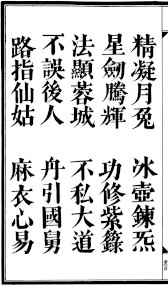 精凝月兔　冰壺鍊炁
星劍騰輝　功修紫籙
法顯蓉城　不私大道
不誤後人　舟引國舅
路指仙姑　麻衣心易